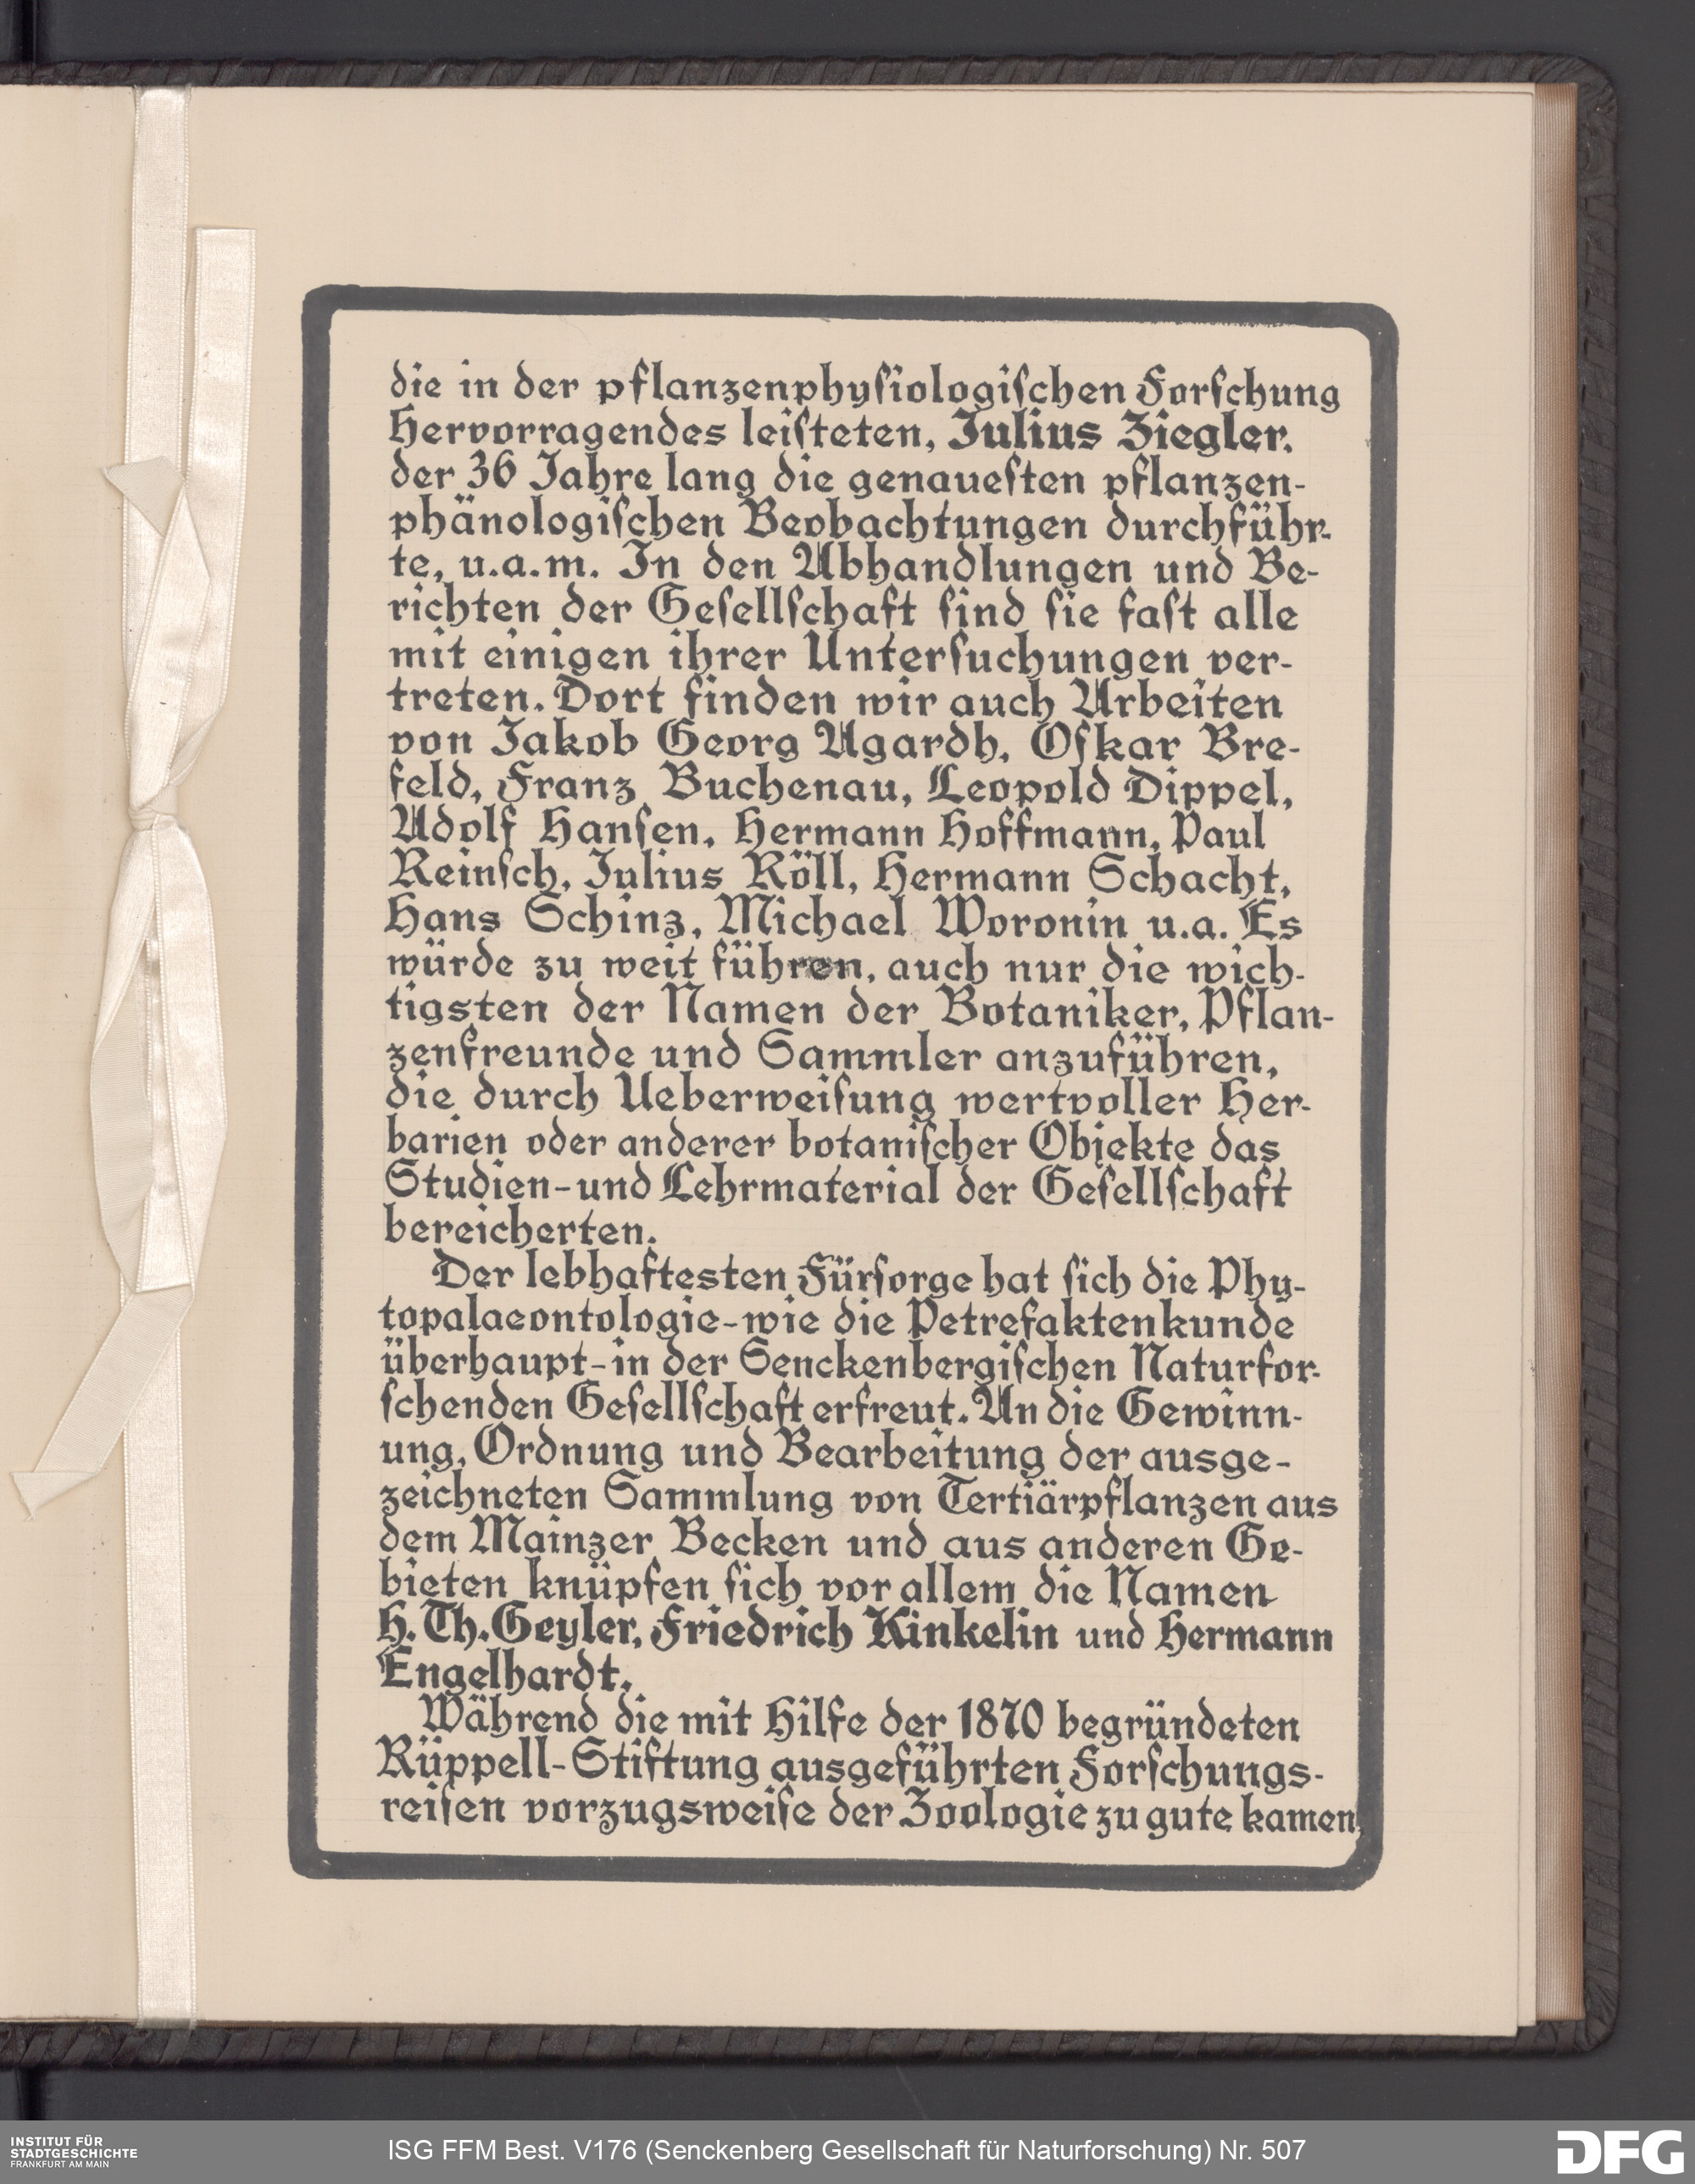 die in der pflanzenphyſiologiſchen Forſchung
Hervorragendes leiſteten, Julius Ziegler,
der 36 Jahre lang die genaueſten pflanzen-
phänologiſchen Beobachtungen durchführ-
te, u.a.m. In den Abhandlungen und Be-
richten der Geſellſchaft ſind ſie faſt alle
mit einigen ihrer Unterſuchungen ver-
treten. Dort finden wir auch Arbeiten
von Jakob Georg Agardh, Oſkar Bre-
feld, Franz Buchenau, Leopold Dippel,
Adolf Hanſen, Hermann Hoffmann, Paul
Reinſch, Julius Röll, Hermann Schacht,
Hans Schinz, Michael Woronin u.a. Es
würde zu weit führen, auch nur die wich-
tigsten der Namen der Botaniker, Pflan-
zenfreunde und Sammler anzuführen,
die durch Ueberweiſung wertvoller Her-
barien oder anderer botaniſcher Objekte das
Studien-und Lehrmaterial der Geſellſchaft
bereicherten.
Der lebhaftesten Fürſorge hat ſich die Phy-
topalaeontologie-wie die Petrefaktenkunde
überhaupt-in der Senckenbergiſchen Naturfor-
ſchenden Geſellſchaft erfreut. An die Gewinn-
ung, Ordnung und Bearbeitung der ausge-
zeichneten Sammlung von Tertiärpflanzen aus
dem Mainzer Becken und aus anderen Ge-
bieten knüpfen ſich vor allem die Namen
H. Th. Geyler, Friedrich Kinkelin und Hermann
Engelhardt.
Während die mit Hilfe der 1870 begründeten
Rüppell-Stiftung ausgeführten Forſchungs-
reiſen vorzugsweiſe der Zoologie zu gute kamen,
INSTITUT FÜR
STADTGESCHICHTE
FRANKFURT AM MAIN
ISG FFM Best. V176 (Senckenberg Gesellschaft für Naturforschung) Nr. 507
DFG